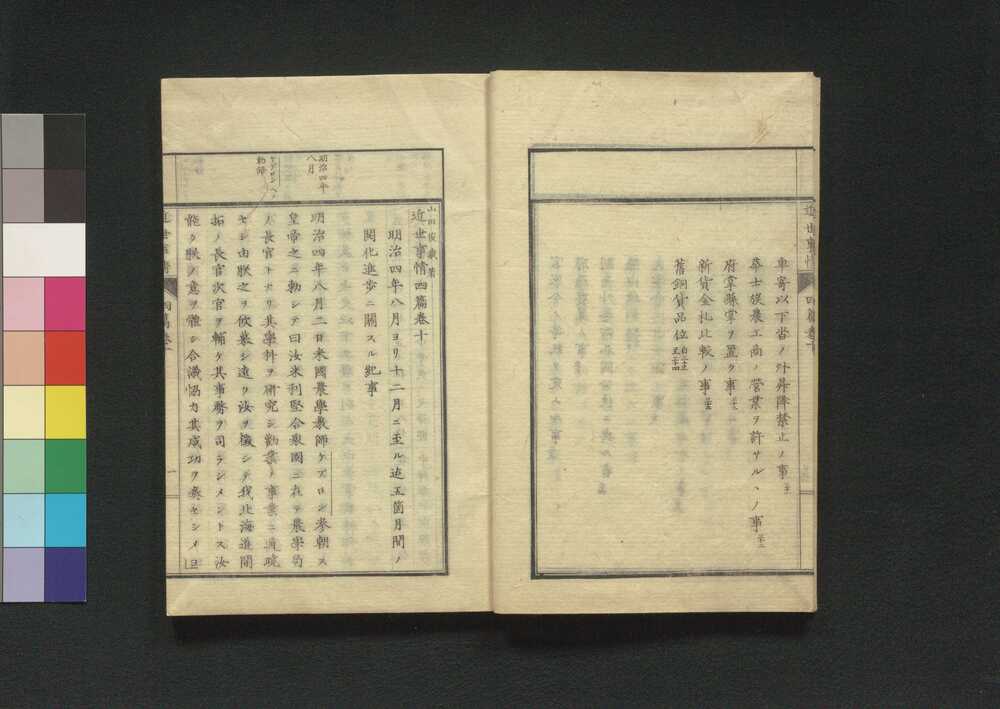 車寄以下沓ノ外昇降禁止ノ事
華士族農工商ノ營業ヲ許サルヽノ事
府掌縣掌ヲ置ク事
新貨金札比較ノ事
舊銅貨品位
近世事情四篇卷十
明治四年八月ヨリ十二月ニ至ル迄五箇月間ノ
開化進歩ニ關スル紀事
明治四年八月
明治四年八月二日米國農學教師ケプロン參朝ス
ケプロンヘノ勅語
皇帝之ニ勅シテ曰汝米利堅合衆國ニ在テ農學局
ノ長官トナリ其學科ヲ研究シ勸業ノ事業ニ通曉
セシ由朕之ヲ欣慕シ遠ク汝ヲ徴シテ我北海道開
拓ノ長官次官ヲ輔ケ其事務ヲ司ラシメントス汝
能ク朕ノ意ヲ體シ合議協力其成功ヲ奏セシメヨ